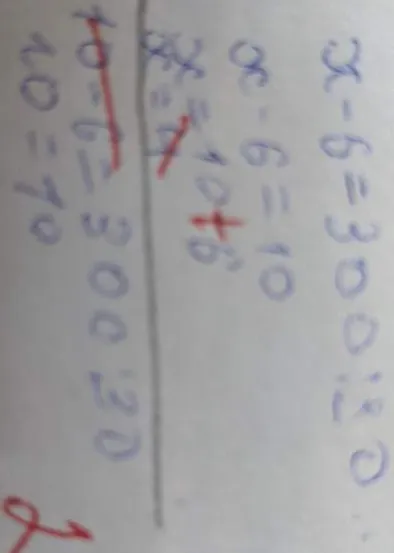 x - 6 = 300 : 30
x - 6 = 10
x = 10 + 6
x = 4
10 - 6 = 300 : 30
10 = 10
2